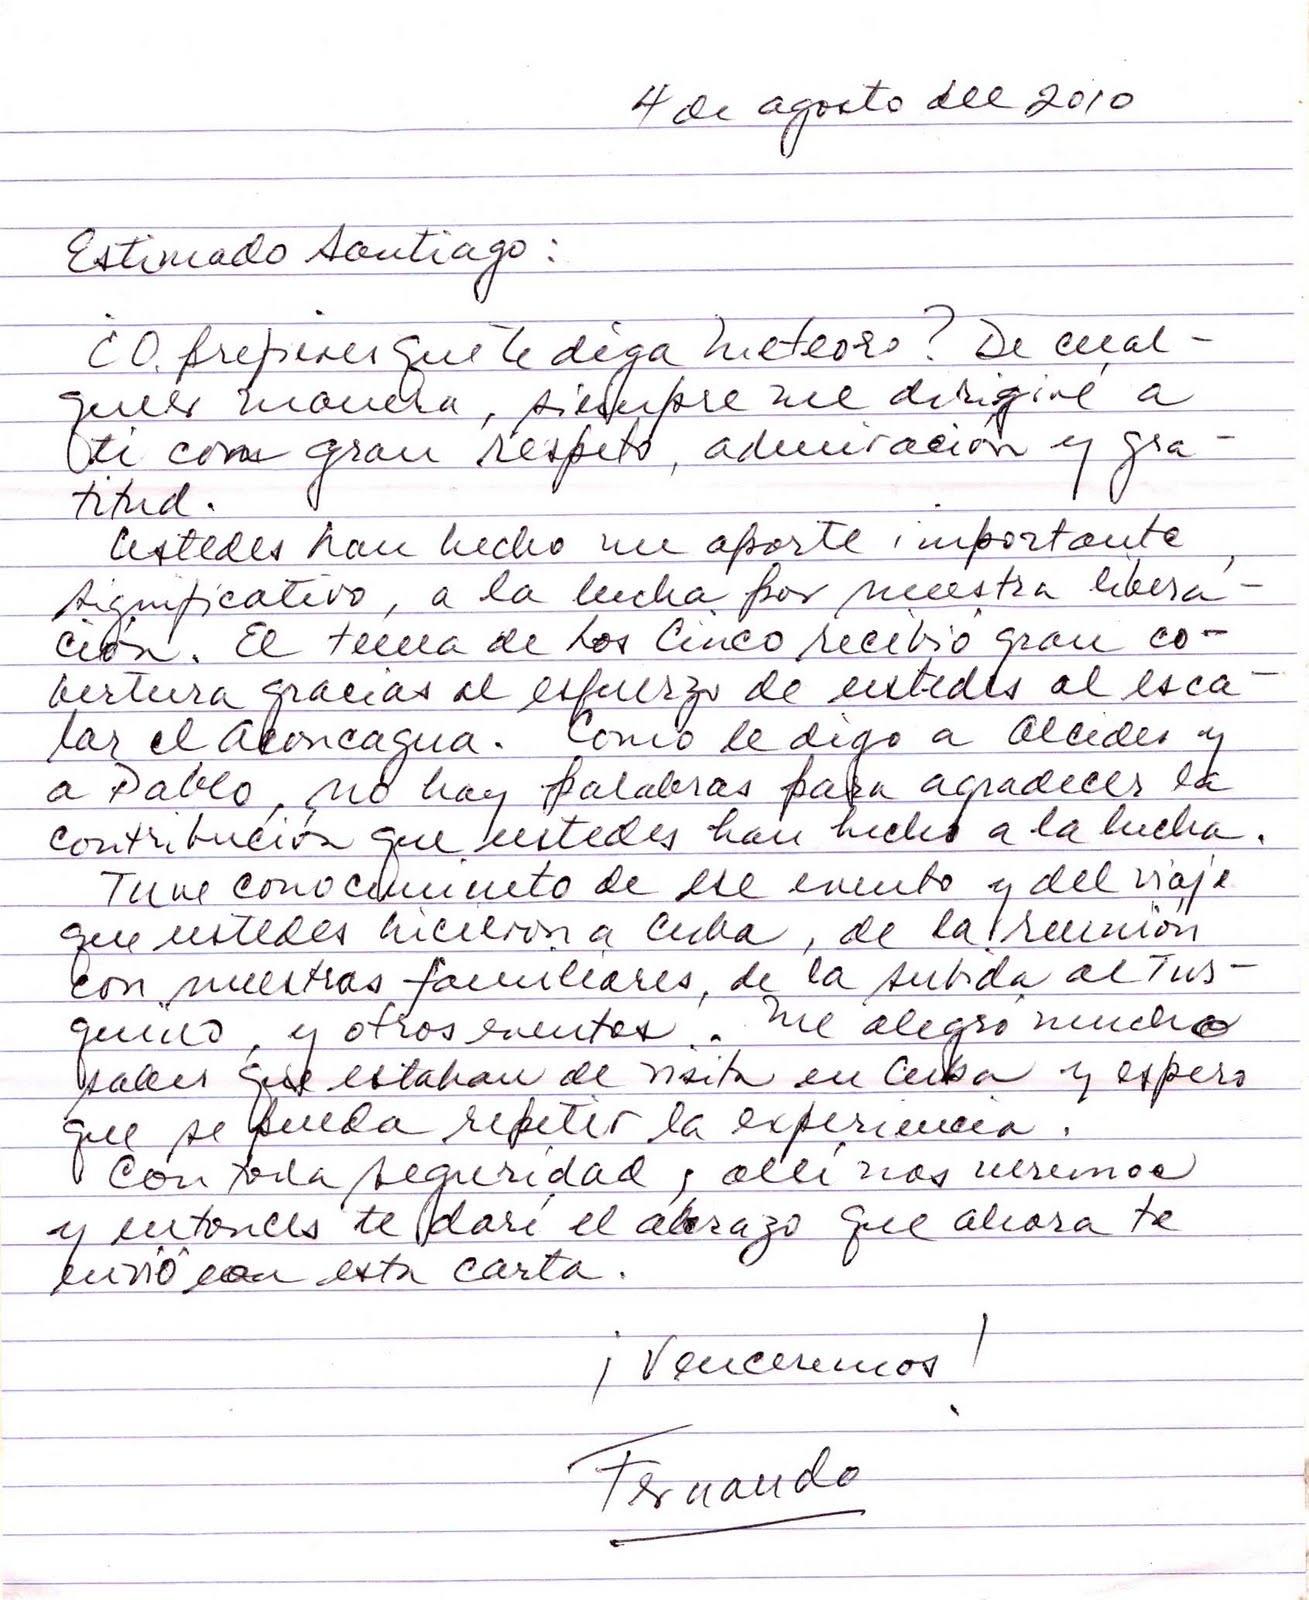 4 de agosto del 2010
Estimado Santiago:
¿O prefieres que te diga Meteoro? De cual-
quier manera, siempre me dirigiré a
ti con gran respeto, admiración y gra-
titud.
Ustedes han hecho un aporte importante,
significativo, a la lucha por nuestra libera-
ción. El tema de Los Cinco recibió gran co-
bertura gracias al esfuerzo de ustedes al esca-
lar el Aconcagua. Como le digo a Alcides y
a Pablo, no hay palabras para agradecer la
contribución que ustedes han hecho a la lucha.
Tuve conocimiento de ese evento y del viaje
que ustedes hicieron a Cuba, de la reunión
con nuestros familiares, de la subida al Tur-
quino, y otros eventos. Me alegró mucho
saber que estaban de visita en Cuba y espero
que se pueda repetir la experiencia.
Con toda seguridad, allí nos veremos
y entonces te daré el abrazo que ahora te
envío con esta carta.
¡Venceremos!
Fernando